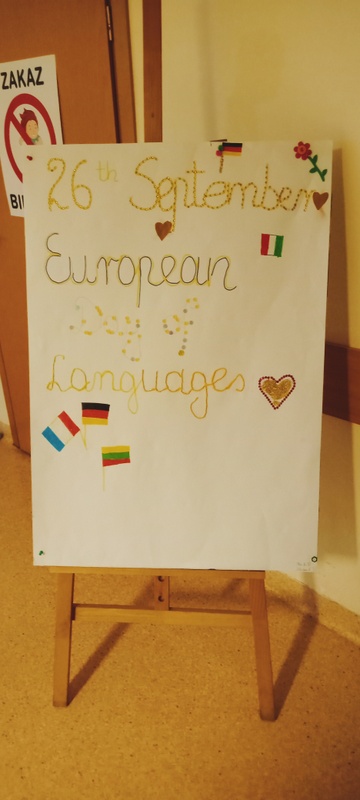 ZAKAZ
26th September
European
Day of
Languages